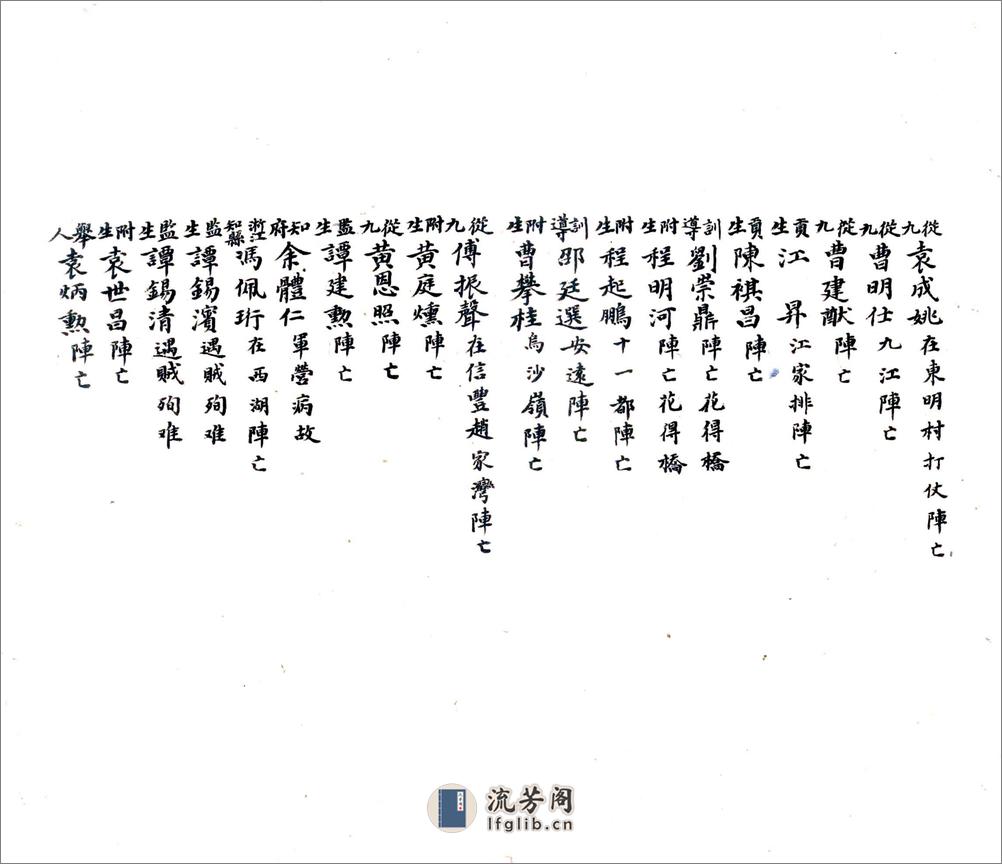 從九袁成姚在東明村打仗陣亡
從九曹明仕九江陣亡
從九曹建猷陣亡
貢生江昇江家排陣亡
貢生陳祺昌陣亡
訓導劉崇鼎陣亡花得橋
附生程明河陣亡花得橋
附生程起鵬十一都陣亡
訓導邵廷選安遠陣亡
附生曹攀桂烏沙嶺陣亡
從九傅振聲在信豐趙家灣陣亡
附生黃庭燻陣亡
從九黃恩照陣亡
監生譚建勲陣亡
知府余體仁軍營病故
浙江知縣馮佩珩在西湖陣亡
監生譚錫濱遇賊殉难
監生譚錫清遇賊殉难
附生袁世昌陣亡
舉人袁炳勲陣亡
流芳阁
lfglib.cn